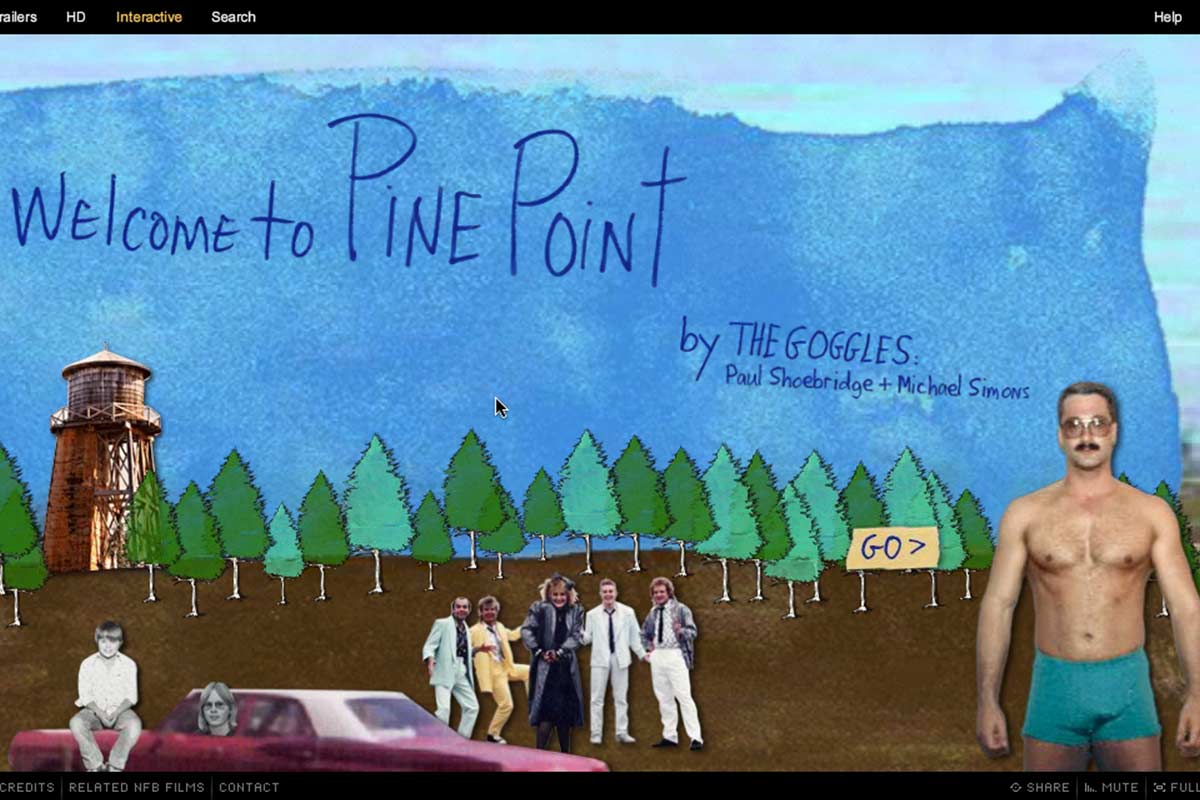 railers HD Interactive Search Help
Welcome to PINE POINT
by THE GOGGLES:
Paul Shoebridge + Michael Simons
GO >
CREDITS RELATED NFB FILMS CONTACT SHARE MUTE FULL